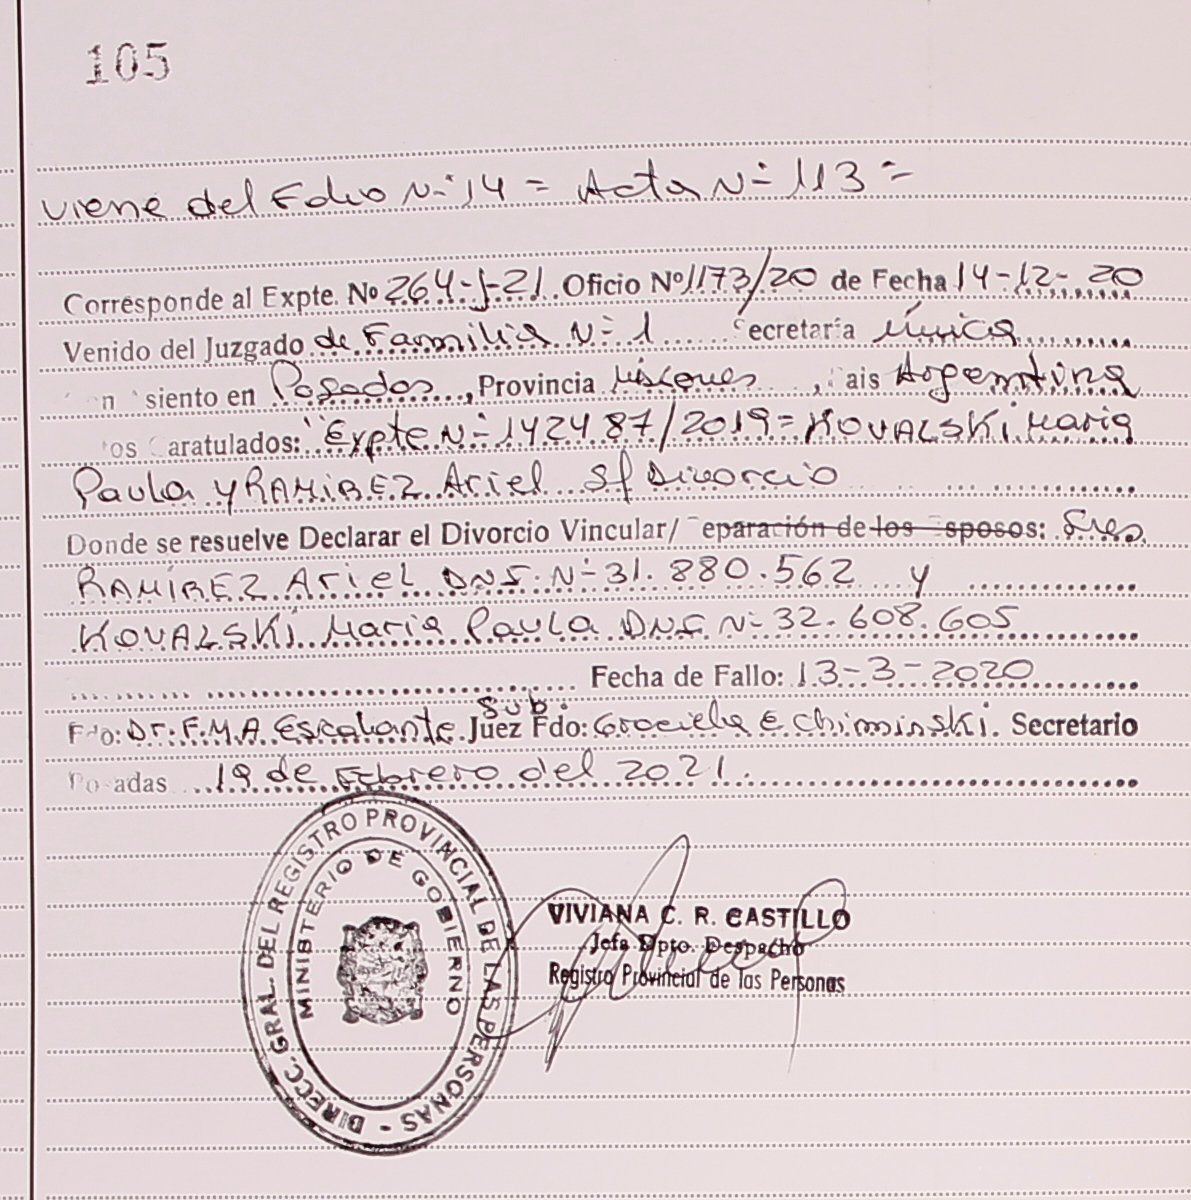 105
viene del Folio N-° 14 = Acta N-° 113 =
Corresponde al Expte. No 264-J-21 Oficio Nº 1173/20 de Fecha 14-12-20
Venido del Juzgado de Familia N-° 1 ecretaría Única
n siento en Posadas, Provincia Misiones, ais Argentina
os aratulados: "Expte N-° 142487/2019 = KOVALSKI Maria
Paula y RAMIREZ Ariel S/ Divorcio
Donde se resuelve Declarar el Divorcio Vincular/ eparación de los sposos: Sres
RAMÍREZ Ariel DNI. N-° 31.880.562 y
KOVALSKI Maria Paula DNI N-° 32.608.605
Fecha de Fallo: 13-3-2020
Sub.
F o: Dr. F.M.A. Escalante Juez Fdo: Graciela E Chiminski. Secretario
Po adas 19 de Febrero del 2021.
DIRECC. GRAL. DEL REGISTRO PROVINCIAL DE LAS PERSONAS -
MINISTERIO DE GOBIERNO
VIVIANA C. R. CASTILLO
Jefa Dpto. Despacho
Registro Provincial de las Personas